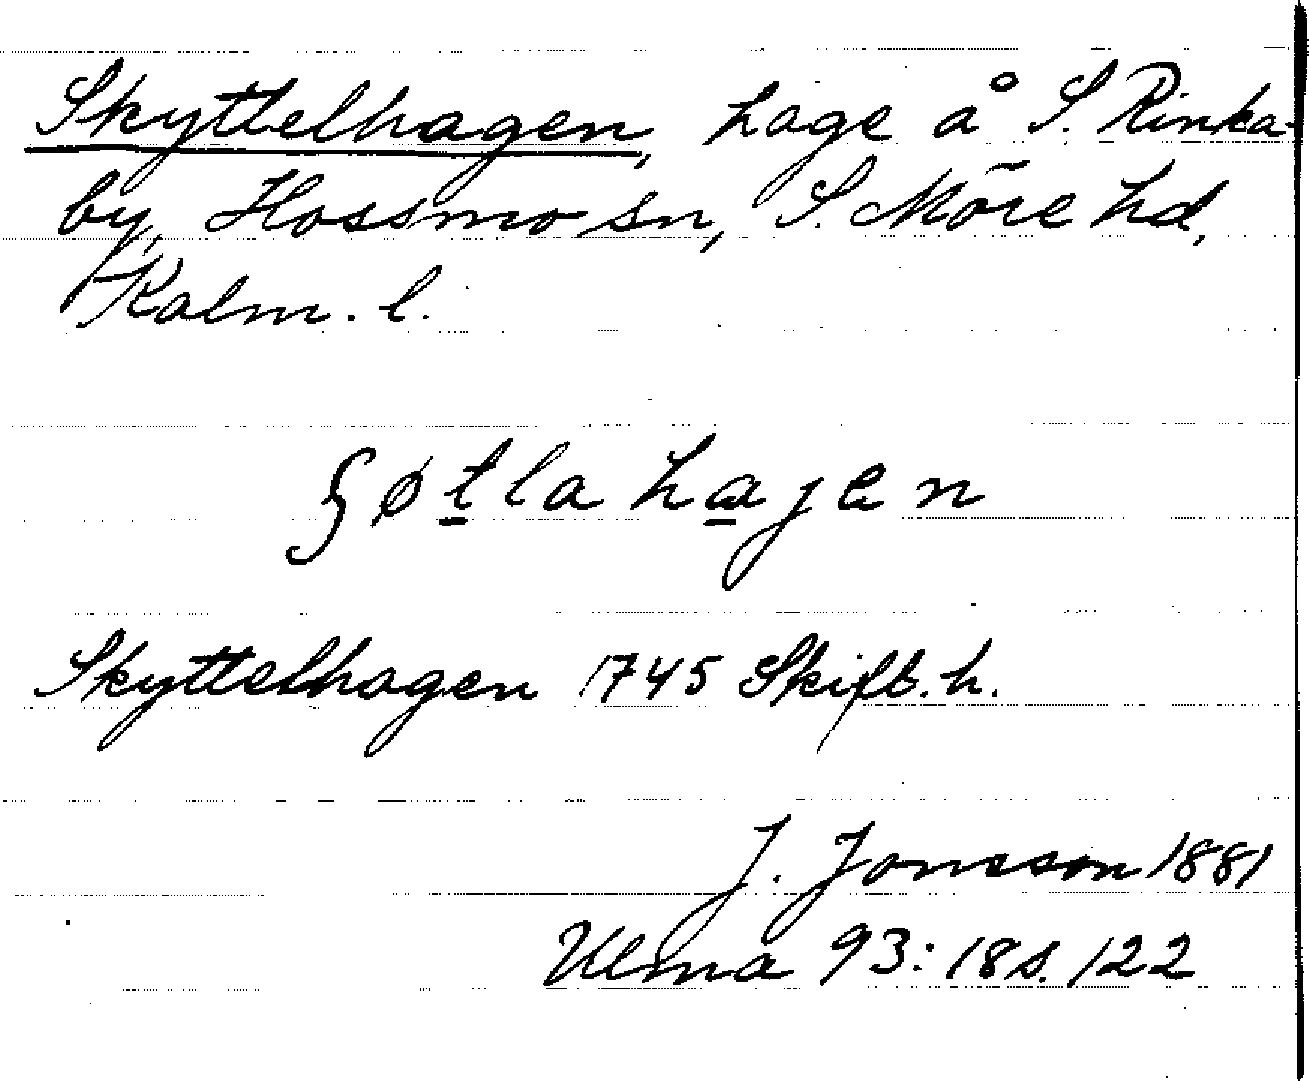 Skyttelhagen, hage å S. Rinka-
by, Hossmo sn, S. Möre hd,
Kalm. l.
ʃøt̲la ha̲jen
Skyttelhagen 1745 Skift. h.
J. Jonsson 1881
Ulma 93:18 s. 122